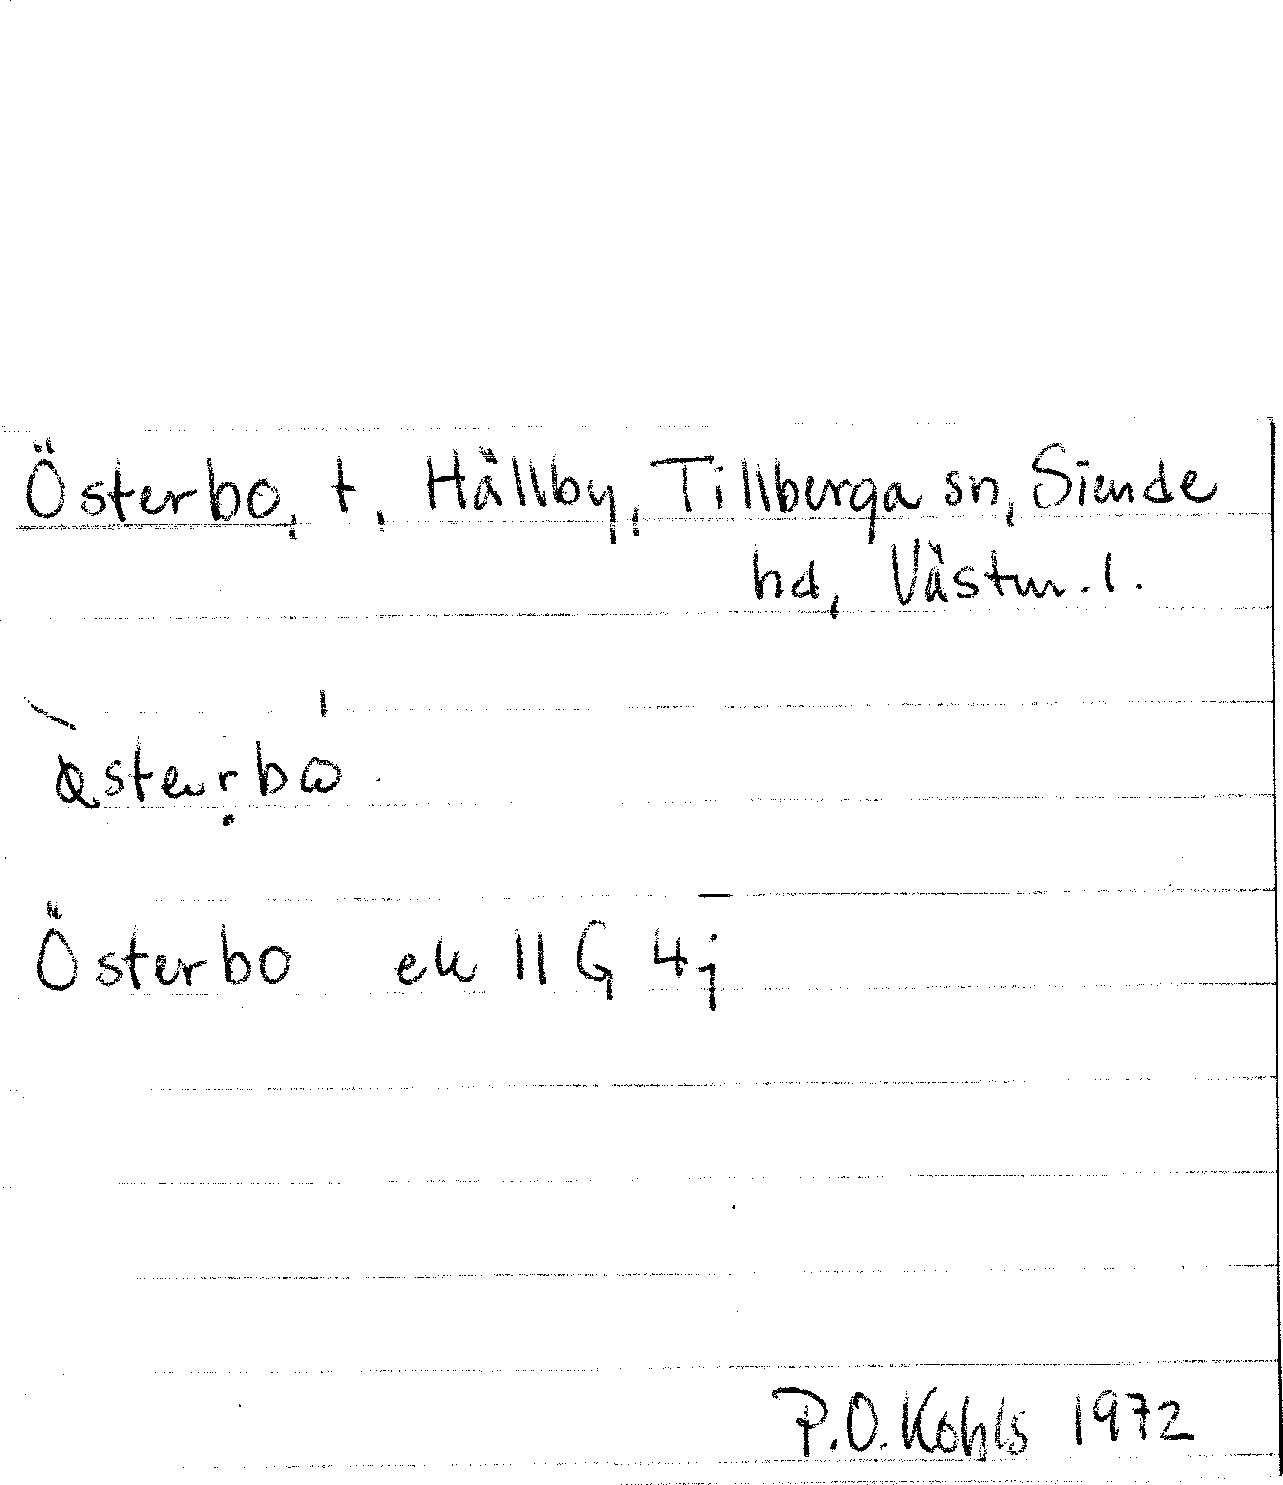 Österbo, t, Hällby, Tillberga sn, Siende
hd, Västm. l.
Österbo ek 11 G 4j
P.O. Kohls 1972